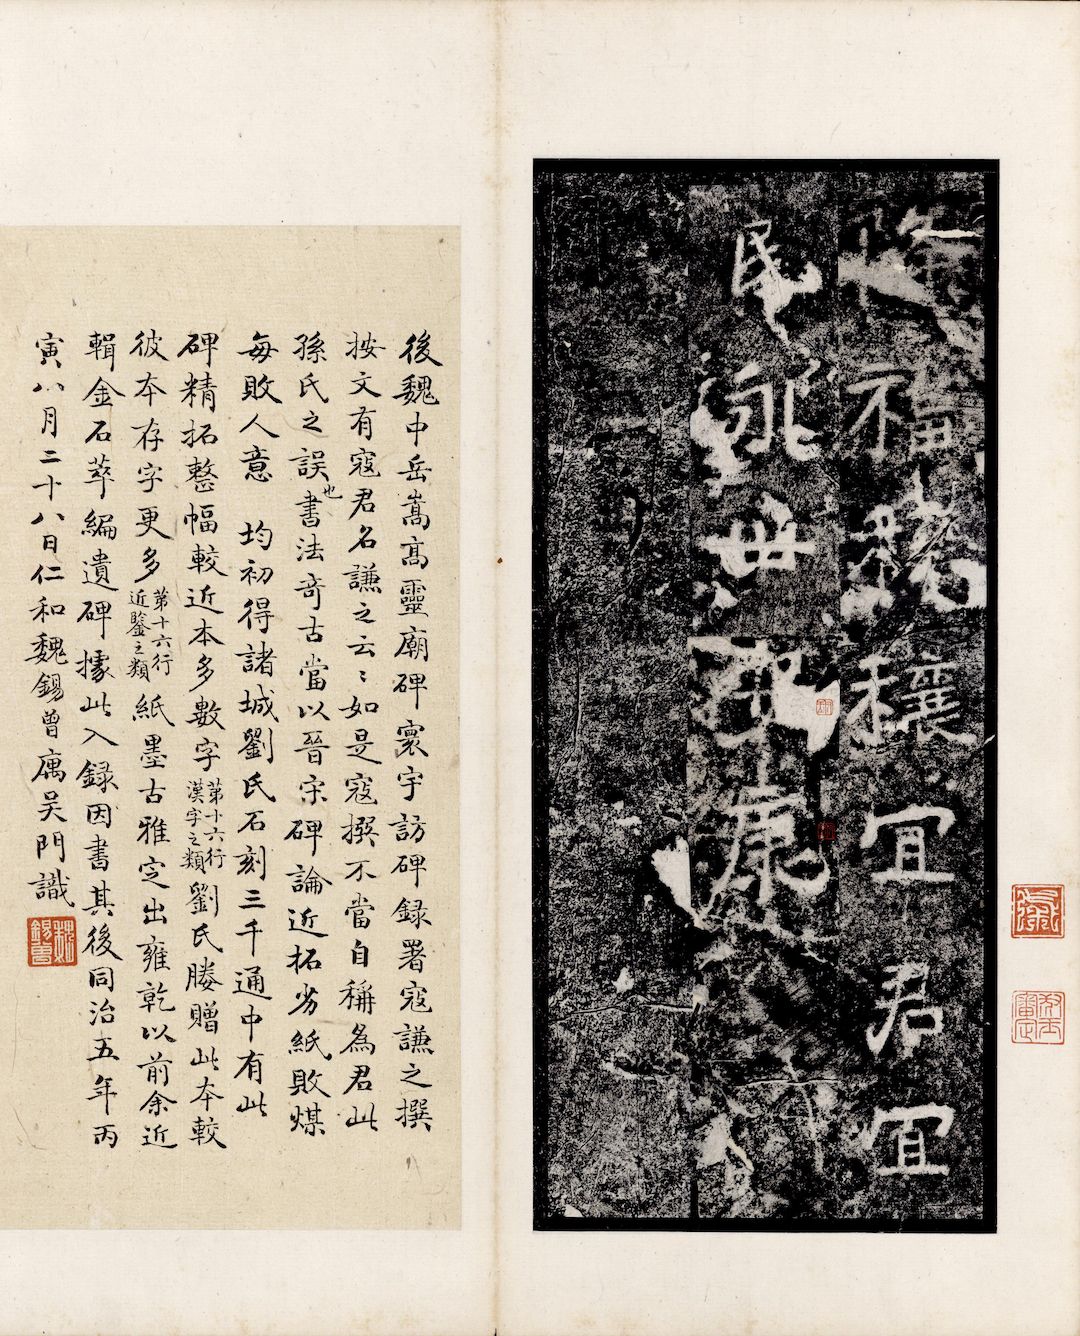 降福穰穰宜君宜
民永世康
後魏中岳嵩高靈廟碑寰宇訪碑録署寇謙之撰
按文有寇君名謙之云〻如是寇撰不當自稱為君此
孫氏之誤也書法奇古當以晉宋碑論近拓劣紙敗煤
每敗人意 均初得諸城劉氏石刻三千通中有此
碑精拓整幅較近本多數字第十六行漢字之類劉氏賸贈此本較
彼本存字更多第十六行近鑒之類紙墨古雅定出雍乾以前余近
輯金石萃編遺碑據此入録因書其後同治五年丙
寅八月二十八日仁和魏錫曾庽吴門識
魏錫曾